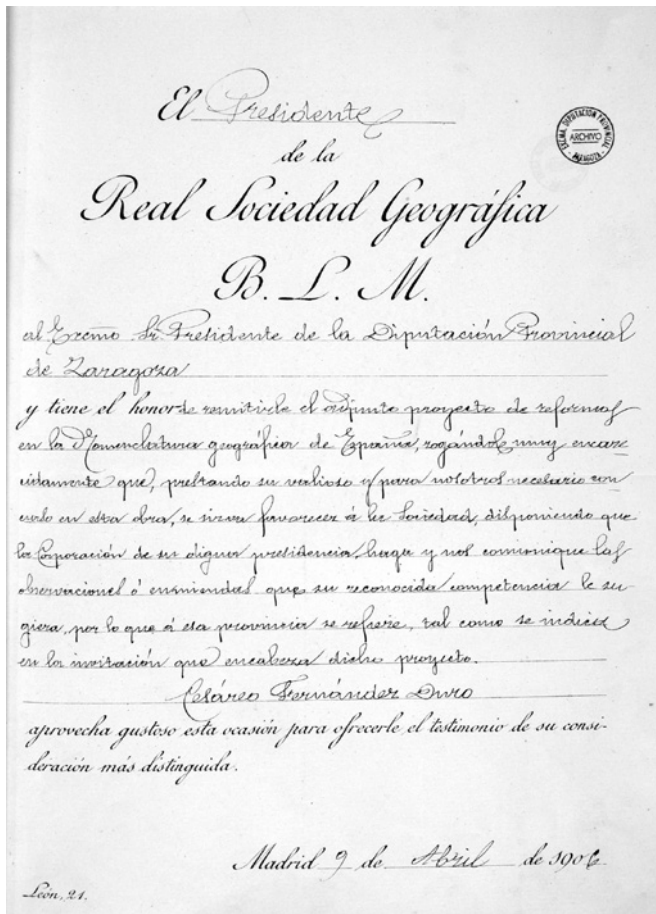 El Presidente
EXCMA. DIPUTACIÓN PROVINCIAL
ARCHIVO
ZARAGOZA
de la
Real Sociedad Geográfica
B. L. M.
al Excmo. Sr. Presidente de la Diputación Provincial
de Zaragoza
y tiene el honor de remitirle el adjunto proyecto de reformas
en la Nomenclatura geográfica de España, rogándole muy encare-
cidamente que, prestando su valioso y para nosotros necesario con-
curso en esta obra, se sirva favorecer á la Sociedad, disponiendo que
la Corporación de su digna presidencia haga y nos comunique las
observaciones ó enmiendas que su reconocida competencia le su-
giera, por lo que á esa provincia se refiere, tal como se indica
en la invitación que encabeza dicho proyecto.
Cesáreo Fernández Duro
aprovecha gustoso esta ocasión para ofrecerle el testimonio de su consi-
deración más distinguida.
Madrid 9 de Abril de 1906
León, 21.